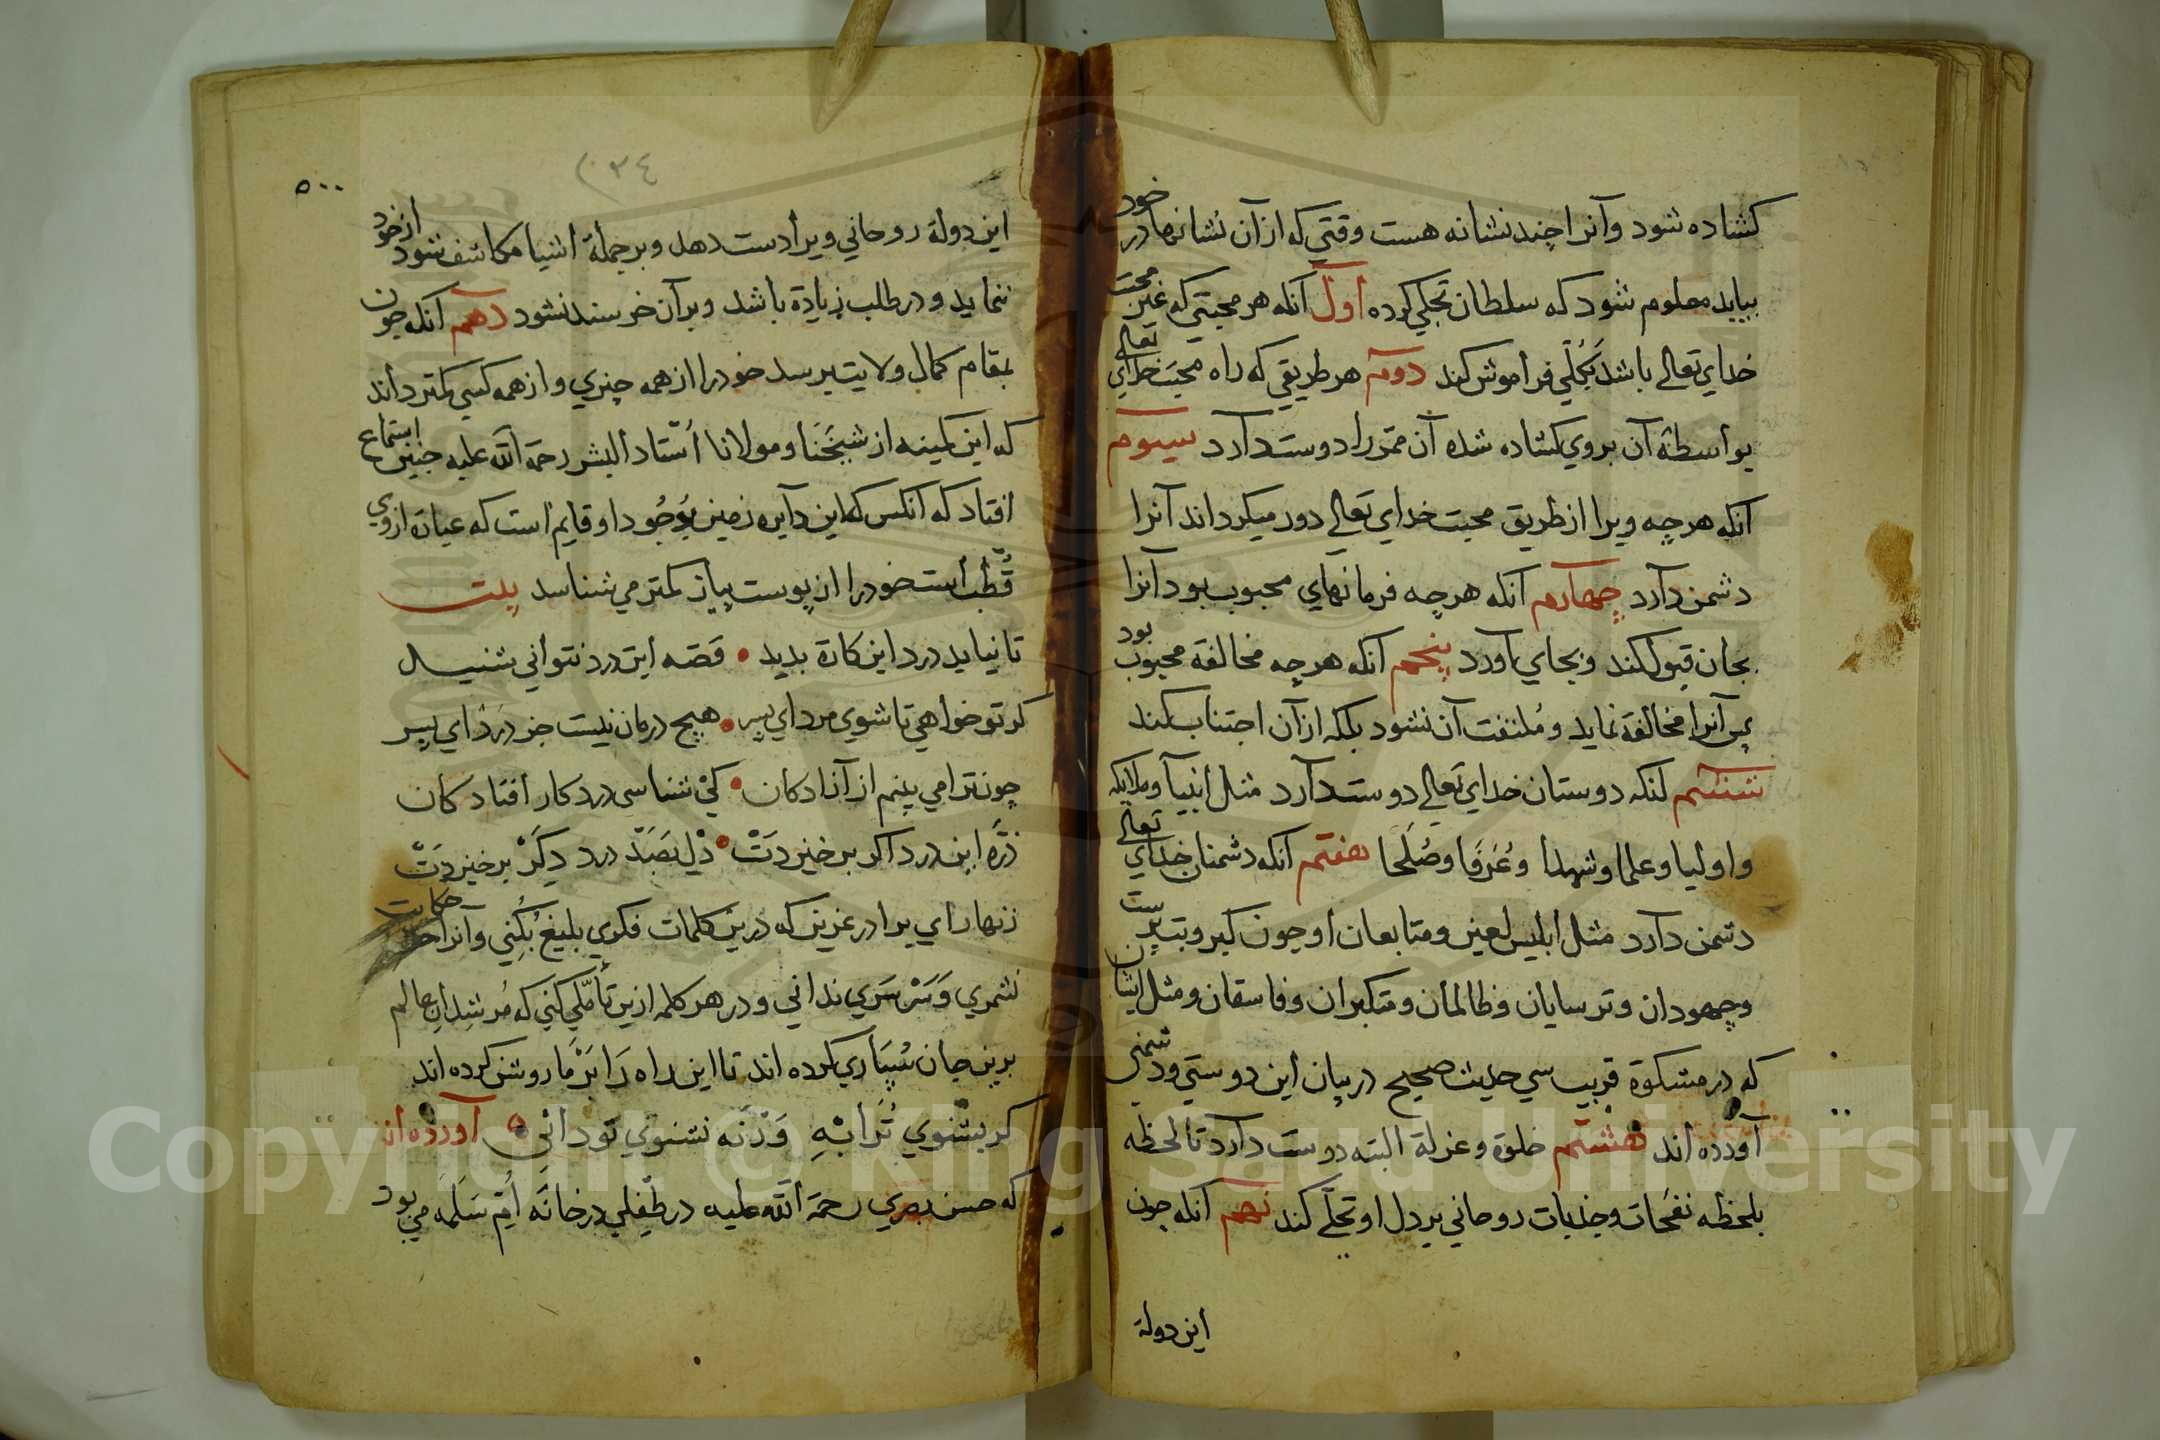 کشاده شود وآنرا چند نشانه هست وقتي که از آن نشانها در خود
بیابد معلوم شود که سلطان تجلي کرده اول آنکه هر محبتي که غیر محبت
خداي تعالے باشد بکلّي فراموش کند دوم هر طریقي که راه محبت خداي تعالے
بواسطهٔ آن بروي کشاده شده آن ممر را دوست دارد سیوم
آنکه هرچه ویرا از طریق محبت خداي تعالے دور میکرداند آنرا
دشمن دارد چهارم آنکه هرچه فرمانهاي محبوب بود آنرا
بجان قبول کند وبجاي آورد پنجم آنکه هرچه مخالفة محبوب بود
پس آنرا مخالفة نماید و مُلتفت آن نشود بلکه از آن اجتناب کند
ششم آنکه دوستان خداي تعالے دوست دارد مثل انبیا وملایکه
واولیا وعلما وشهدا وعُرَفَا وصُلَحَا هفتم آنکه دشمنان خداي تعالے
دشمن دارد مثل ابلیس لعین ومتابعان او چون کبر وبت پرست
وجهودان وترسایان وظالمان ومتکبران وفاسقان ومثل ایشان
که در مشکوة قریب سي حدیث صحیح در بیان این دوستي ودشمني
آورده اند هشتم خلوة وعزلة البته دوست دارد تا لحظه
بلحظه نفحات وجذبات روحاني بر دل او تجلّے کند نهم آنکه چون
این دولة
٥٠٠
این دولة روحاني ویرا دست دهد وبر جملهٔ اشیا مکاشف شود از خود
ننماید ودر طلب زیادة باشد وبرآن خرسند نشود دهم آنکه چون
بمقام کمال ولایت برسد خود را از همه چیزي واز همه کسي کمتر داند
که این کمینه از شیخَنَا ومولانا اُستاد البشر رحمة الله علیه چنین استماع
افتاد که آنکس که این دایره زمین بوُجُود او قایم است که عبارة از وي
قُطْب است خود را از پوست پیاز کمتر مي شناسد بیت
تا نیاید درد این کارة بدید • قصه این درد نتواني شنید
کر تو خواهي تا شوي مرد اي پسر • هیچ درمان نیست جز دَرْد اي پسر
چون ترا مي بینم از آزادکان • کَيْ شناسي درد کار افتادکان
ذرّه این درد اکر بر خیزدَتْ • دِل بَصَدْ درد دِکَرْ بر خیزدَتْ
زنهار اي برادر عزیز که درین کلمات فکري بلیغ بُکُني وآنرا حکایت
نشمري وَسَرْسَري نداني ودر هر کلمه ازین تأمّلي کني که مُرشِدانِ عالم
برین جان سُپَاري کرده اند تا این راه رَا بَرْمَا روشن کرده اند
کر بشنوي تُرا بِهْ وَرْنَه نشنوي تو داني آورده اند
که حسن بصري رحمة الله علیه در طِفلي در خانَه اُمّ سَلَمَه مي بود
Copyright © King Saud University